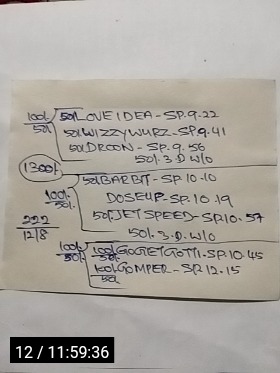 100/50/ 50/LOVE IDEA - SP.9.22
50/WIZZYWURZ - SP.9.41
50/DROON - SP.9.56
50/. 3.D. W/O
1300/-
50/BARBIT - SP.10.10
100/50/. DOSEUP - SP.10.19
50/JET SPEED - SP.10.57
50/. 3.D. W/O
222
12/8
100/50/. 100/50/. GOGETGOTTI - SP.10.45
100/50/. GOMPER - SP.12.15
12 / 11:59:36